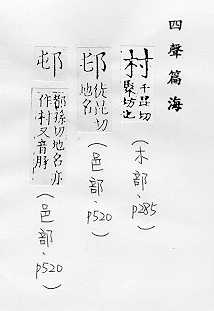 四聲篇海
村
千昆切
聚坊也
(木部、p285)
邨
地名
(邑部、p520)
邨
都孫切地名亦
作村又音豚
(邑部、p520)